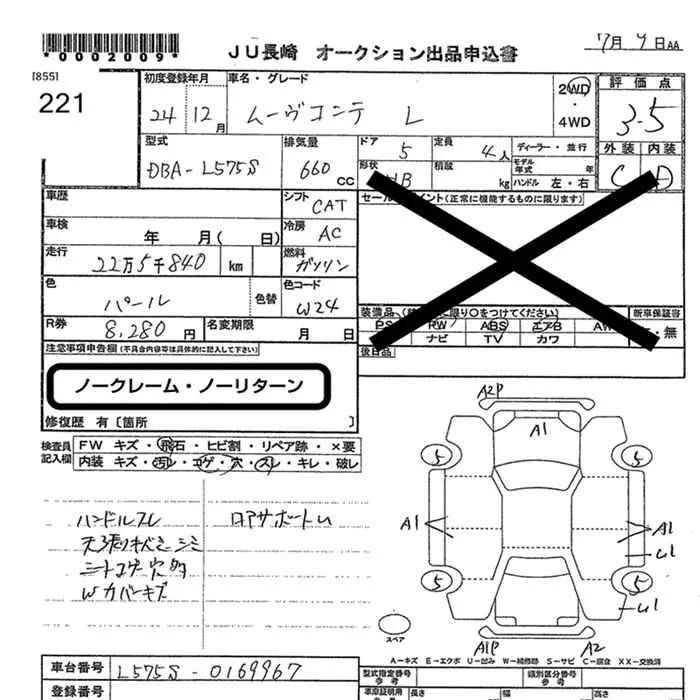 *0002009*
JU長崎 オークション出品申込書
7月9日AA
[855]
221
初度登録年月
24 12月
車名・グレード
ムーヴコンテ L
2WD
・
4WD
評価点
3.5
外装 内装
C D
型式
DBA-L575S
排気量
660 CC
ドア
5
定員
4人
ディーラー・並行
モデル年式 年
形状
積載 kg
ハンドル 左・右
車歴
シフト
CAT
車検
年 月( 日)
冷房
AC
走行
22万5千840 km
燃料
ガソリン
色
パール
色替
色コード
W24
R券
8,280円
名変期限
月 日
(正常に機能するものに限ります)
限り〇をつけてください)
新車保証書
無
ABS エアB
ナビ TV カワ
後日品
注意事項申告欄(不具合内容等は具体的に記入して下さい)
ノークレーム・ノーリターン
修復歴 有〔箇所 〕
検査員記入欄
FW キズ・飛石・ヒビ割・リペア跡・×要
内装 キズ・汚レ・コゲ・穴・スレ・キレ・破レ
ハンドルスレ
天張り状ミシミ
シートコゲ穴多
Wカバーキズ
ロアサポートU
A2P
A1
5 5
A1 A1
U1
5 5
U1
スペア
A1P A2
A-キズ E-エクボ U-凹み W-補修跡 S-サビ C-腐食 XX-交換済
車台番号
L575S-0169967
登録番号
型式指定番号
参考
類別区分番号
参考
長さ 幅 高さ